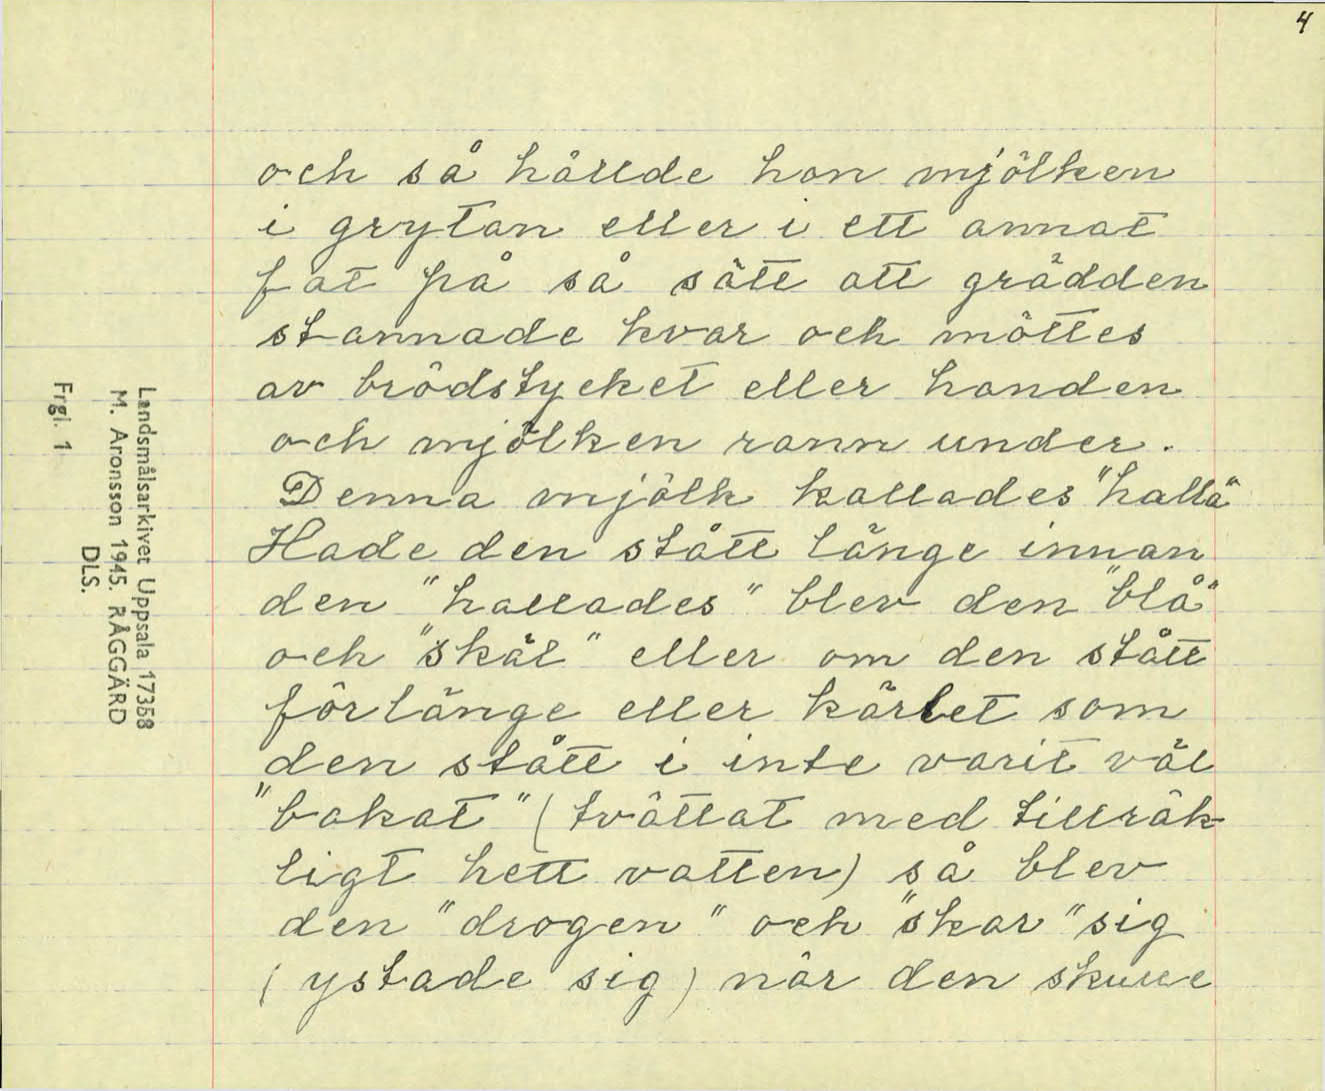 4
och så hällde hon mjölken
i grytan eller i ett annat
fat på så sätt att grädden
stannade kvar och möttes
av brödstycket eller handen
och mjölken rann under.
Denna mjölk kallades "hallå"
Hade den stått länge innan
den "hallades" blev den "blå"
och "skäl" eller om den stått
förlänge eller kärlet som
den stått i inte varit väl
"bakat" (tvättat med tillräk-
ligt hett vatten) så blev
den "drogen" och "skar" sig
(ystade sig) när den skulle
Landsmålsarkivet Uppsala 17358
M. Aronsson 1945. RÅGGÄRD
DLS.
Frgl. 1